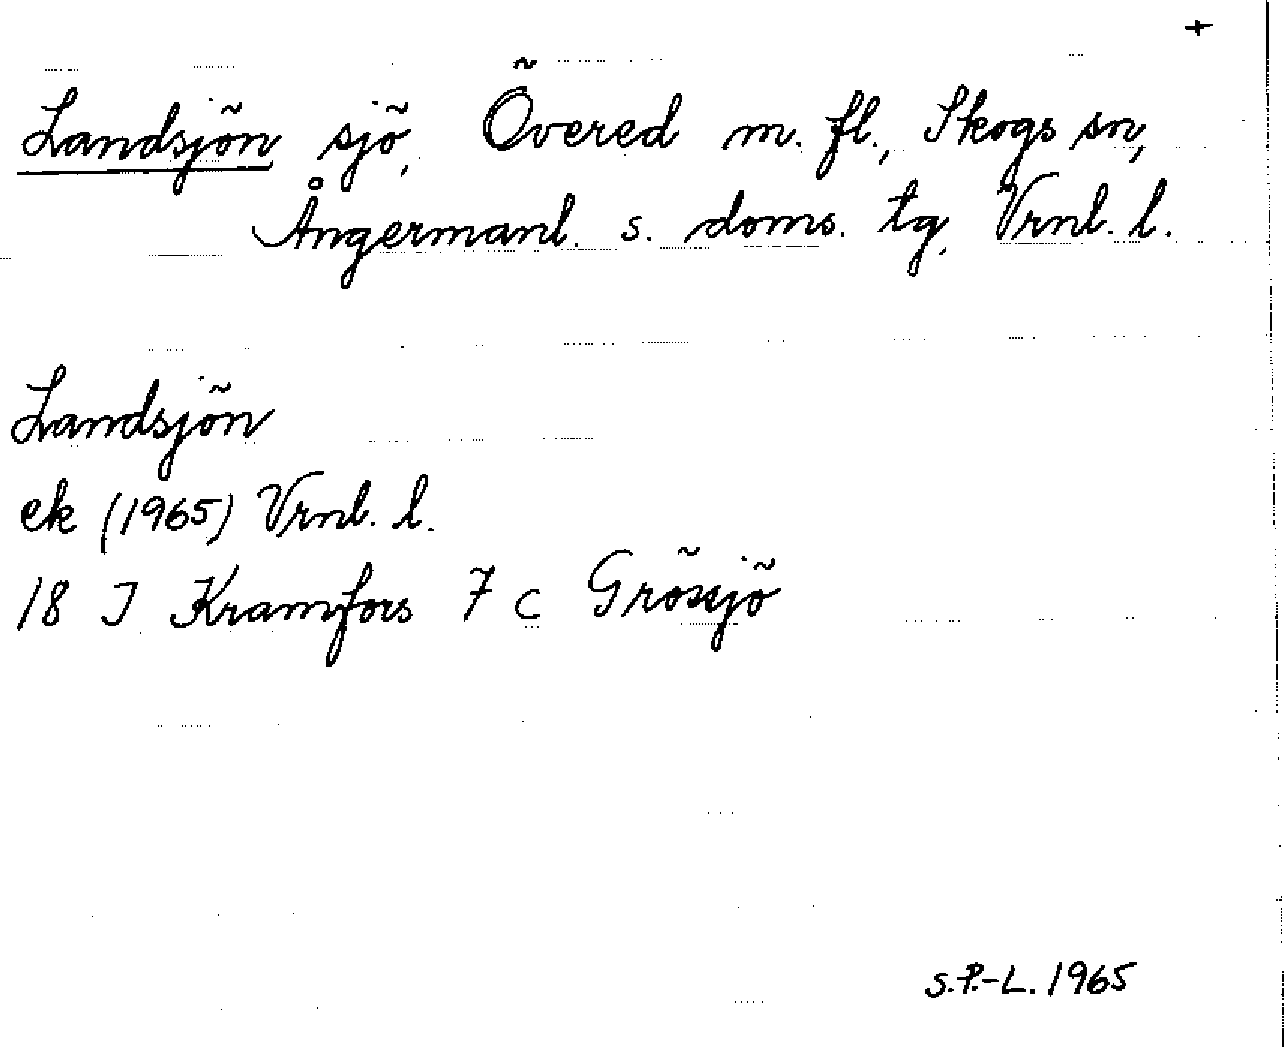 +
Landsjön sjö, Övered m. fl., Skogs sn,
Ångermanl. s. doms. tg, Vrnl. l.
Landsjön
ek (1965) Vrnl. l.
18 I Kramfors 7 c Grössjö
S.P.-L. 1965